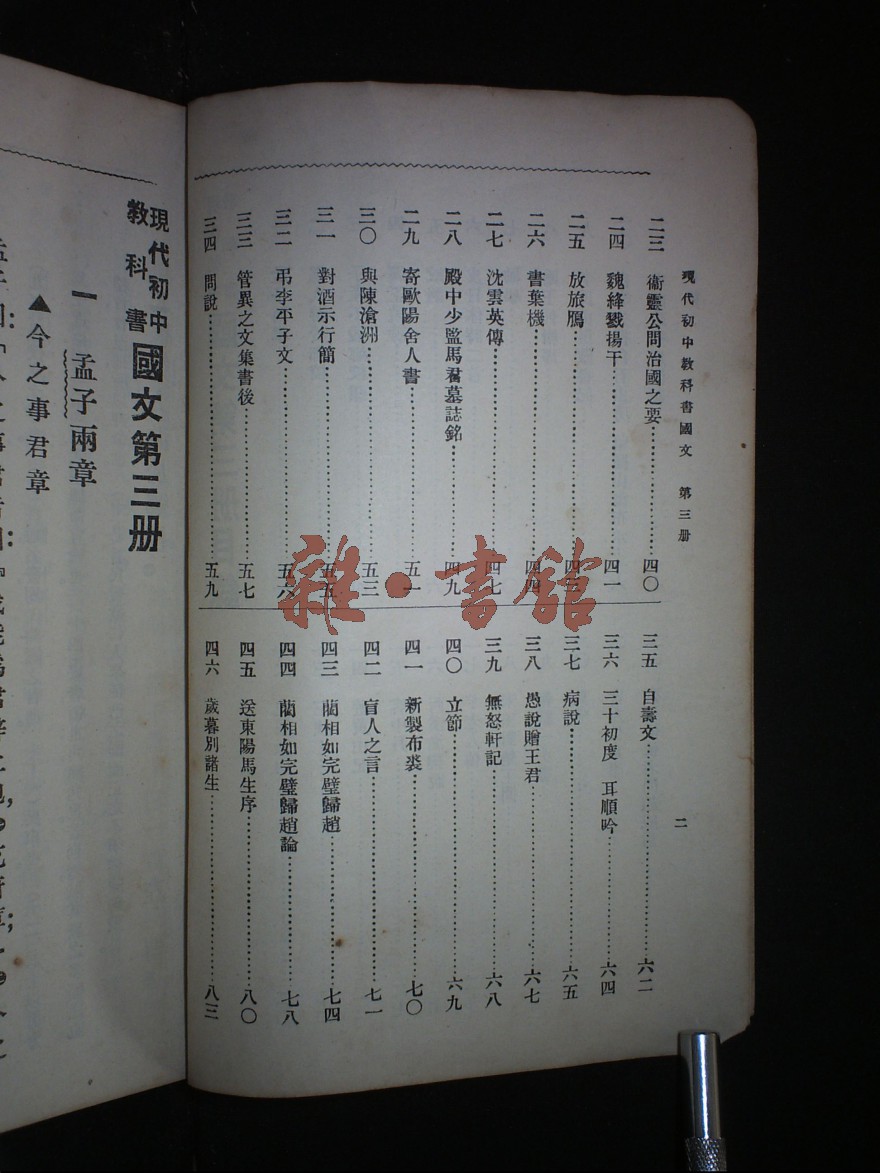 現代初中教科書國文 第三册
二
二三 衞靈公問治國之要 四〇
二四 魏絳戮揚干 四一
二五 放旅鴈
二六 書葉機
二七 沈雲英傳 四七
二八 殿中少監馬君墓誌銘 四九
二九 寄歐陽舍人書 五一
三〇 與陳滄洲 五三
三一 對酒示行簡 五五
三二 弔李平子文 五六
三三 管異之文集書後 五七
三四 問說 五九
三五 自壽文 六二
三六 三十初度 耳順吟 六四
三七 病說 六五
三八 愚說贈王君 六七
三九 無怒軒記 六八
四〇 立節 六九
四一 新製布裘 七〇
四二 盲人之言 七一
四三 藺相如完璧歸趙 七四
四四 藺相如完璧歸趙論 七八
四五 送東陽馬生序 八〇
四六 歲暮別諸生 八三
雜·書館
現代初中教科書 國文第三册
一 孟子兩章
▲今之事君章